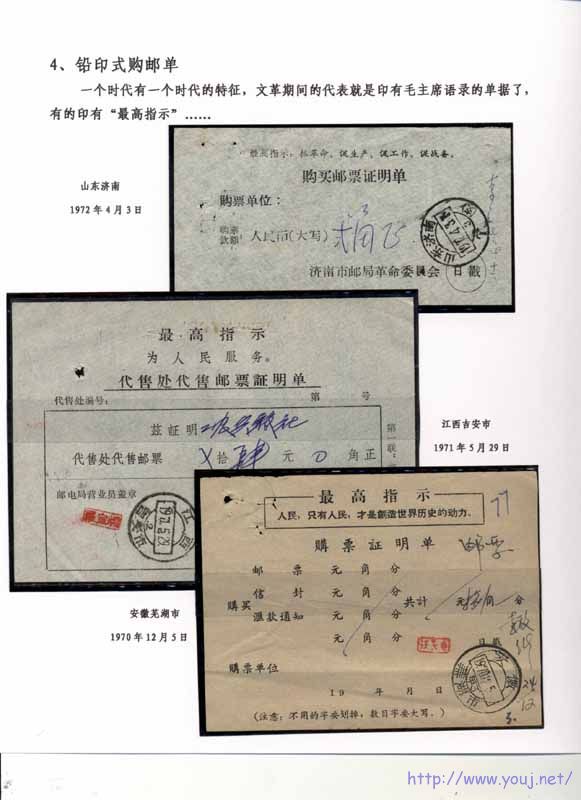 4、铅印式购邮单
一个时代有一个时代的特征，文革期间的代表就是印有毛主席语录的单据了，
有的印有“最高指示”……
山东济南
1972年4月3日
最高指示：抓革命、促生产、促工作、促战备。
购买邮票证明单
购票单位：
购票款额：人民币(大写)
济南市邮局革命委员会 日戳
山东济南
最高指示
为人民服务。
代售处代售邮票証明单
代售处编号： 第 号
兹証明
代售处代售邮票 拾 元 角正
邮电局营业员盖章
第一联：
江西
1971.5.29
江西吉安市
1971年5月29日
安徽芜湖市
1970年12月5日
最高指示
人民，只有人民，才是创造世界历史的动力。
77
購票証明单
邮票
邮票 元 角 分
信封 元 角 分
購买 共計 元 角 分
滙款通知 元 角 分
元 角 分
日戳
購票单位
19 年 月 日
(注意：不用的字要划掉，数目字要大写。)
http://www.youj.net/